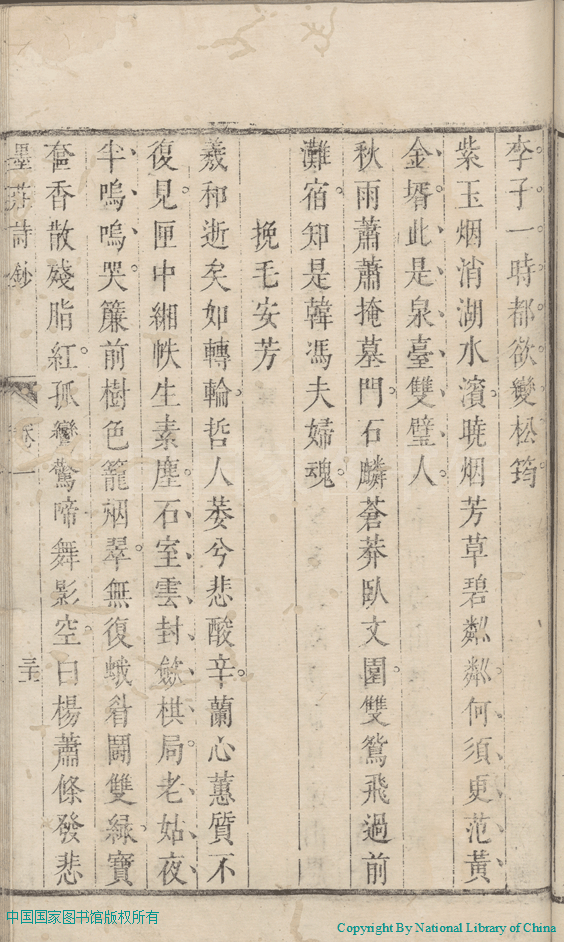 李子一時都欲變松筠
紫玉烟消湖水濱曉烟芳草碧粼粼何須更范黃
金壻此是泉臺雙璧人
秋雨蕭蕭掩墓門石麟蒼莽臥文園雙鴛飛過前
灘宿知是韓馮夫婦魂
挽毛安芳
羲和逝矣如轉輪哲人萎兮悲酸辛蘭心蕙質不
復見匣中緗帙生素塵石室雲封斂棋局老姑夜
半嗚嗚哭簾前樹色籠裀翠無復蛾眉鬪雙綠寶
奩香散殘脂紅孤鸞驚啼舞影空白楊蕭條發悲
墨莊詩鈔
卷一
三十
中国国家图书馆版权所有
Copyright By National Library of China